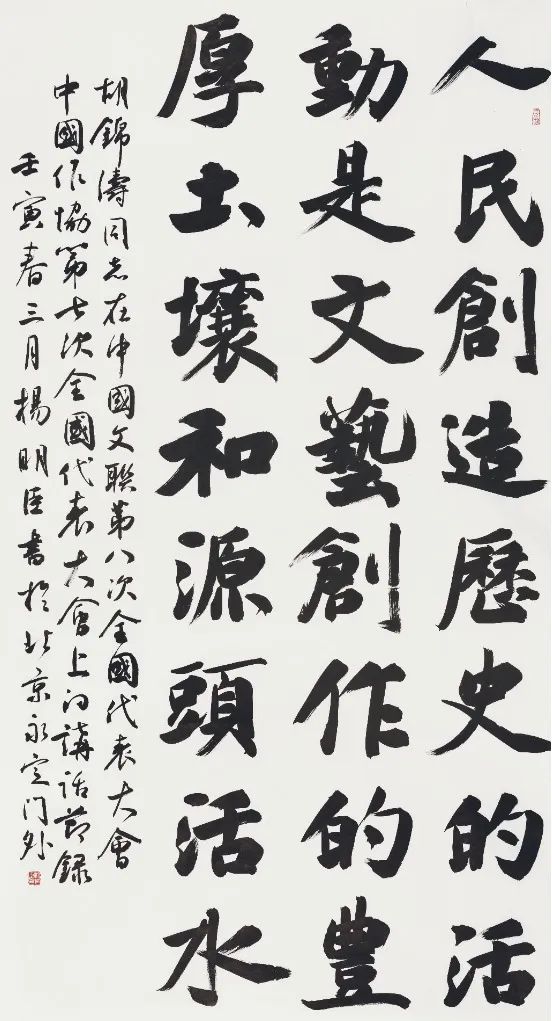 人民創造歷史的活
動是文藝創作的豐
厚土壤和源頭活水
胡錦濤同志在中國文聯第八次全國代表大會
中國作協第七次全國代表大會上的講話節録
壬寅春三月楊明臣書於北京永定门外